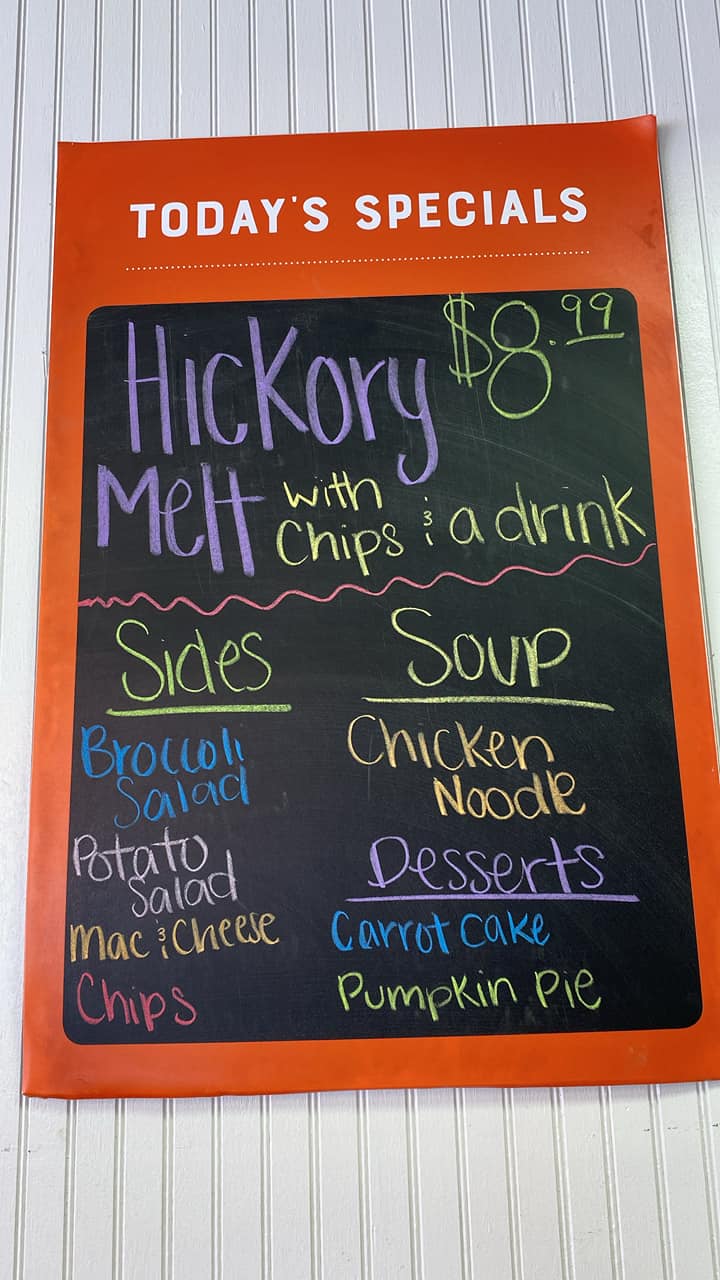 TODAY'S SPECIALS
Hickory $8.99
Melt with
Chips & a drink
Sides
Broccoli
Salad
Potato
Salad
Mac & Cheese
Chips
Soup
Chicken
Noodle
Desserts
Carrot Cake
Pumpkin Pie